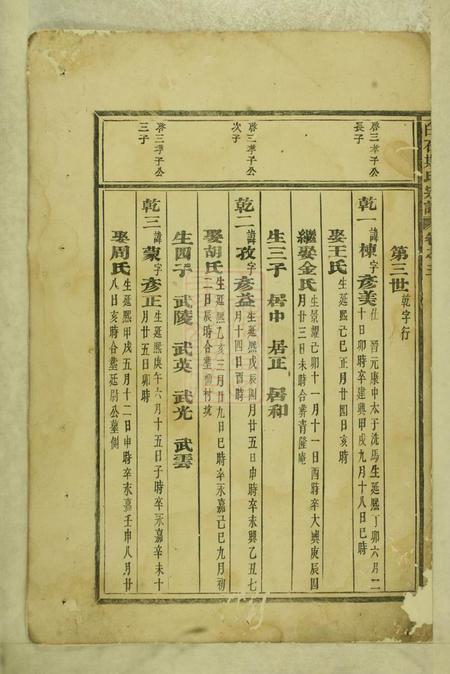 第三世 乾字行
啓三孝子公長子
乾一 諱棟字彥美仕晉元康中太子洗馬生延熙丁卯六月二十日卯時卒建興甲戌九月十八日巳時
娶王氏 生延熙己巳正月廿四日亥時
繼娶金氏 生景耀己卯十一月十一日酉時卒大興庚辰四月廿三日未時合葬青隆庵
生三子 居中 居正 居和
啓三孝子公次子
乾二 諱孜字彥益生延熙戊辰四月廿五日申時卒永興乙丑七月十四日酉時
娶胡氏 生延熙乙亥三月廿九日巳時卒永嘉己巳九月初二日辰時合塟前村垅
生四子 武陵 武英 武光 武雲
啓三孝子公三子
乾三 諱蒙字彥正生延熙庚午六月十五日子時卒永嘉辛未十月廿五日卯時
娶周氏 生延熙甲戌五月十二日申時卒永嘉壬申八月廿八日亥時合塟廷尉公墓側